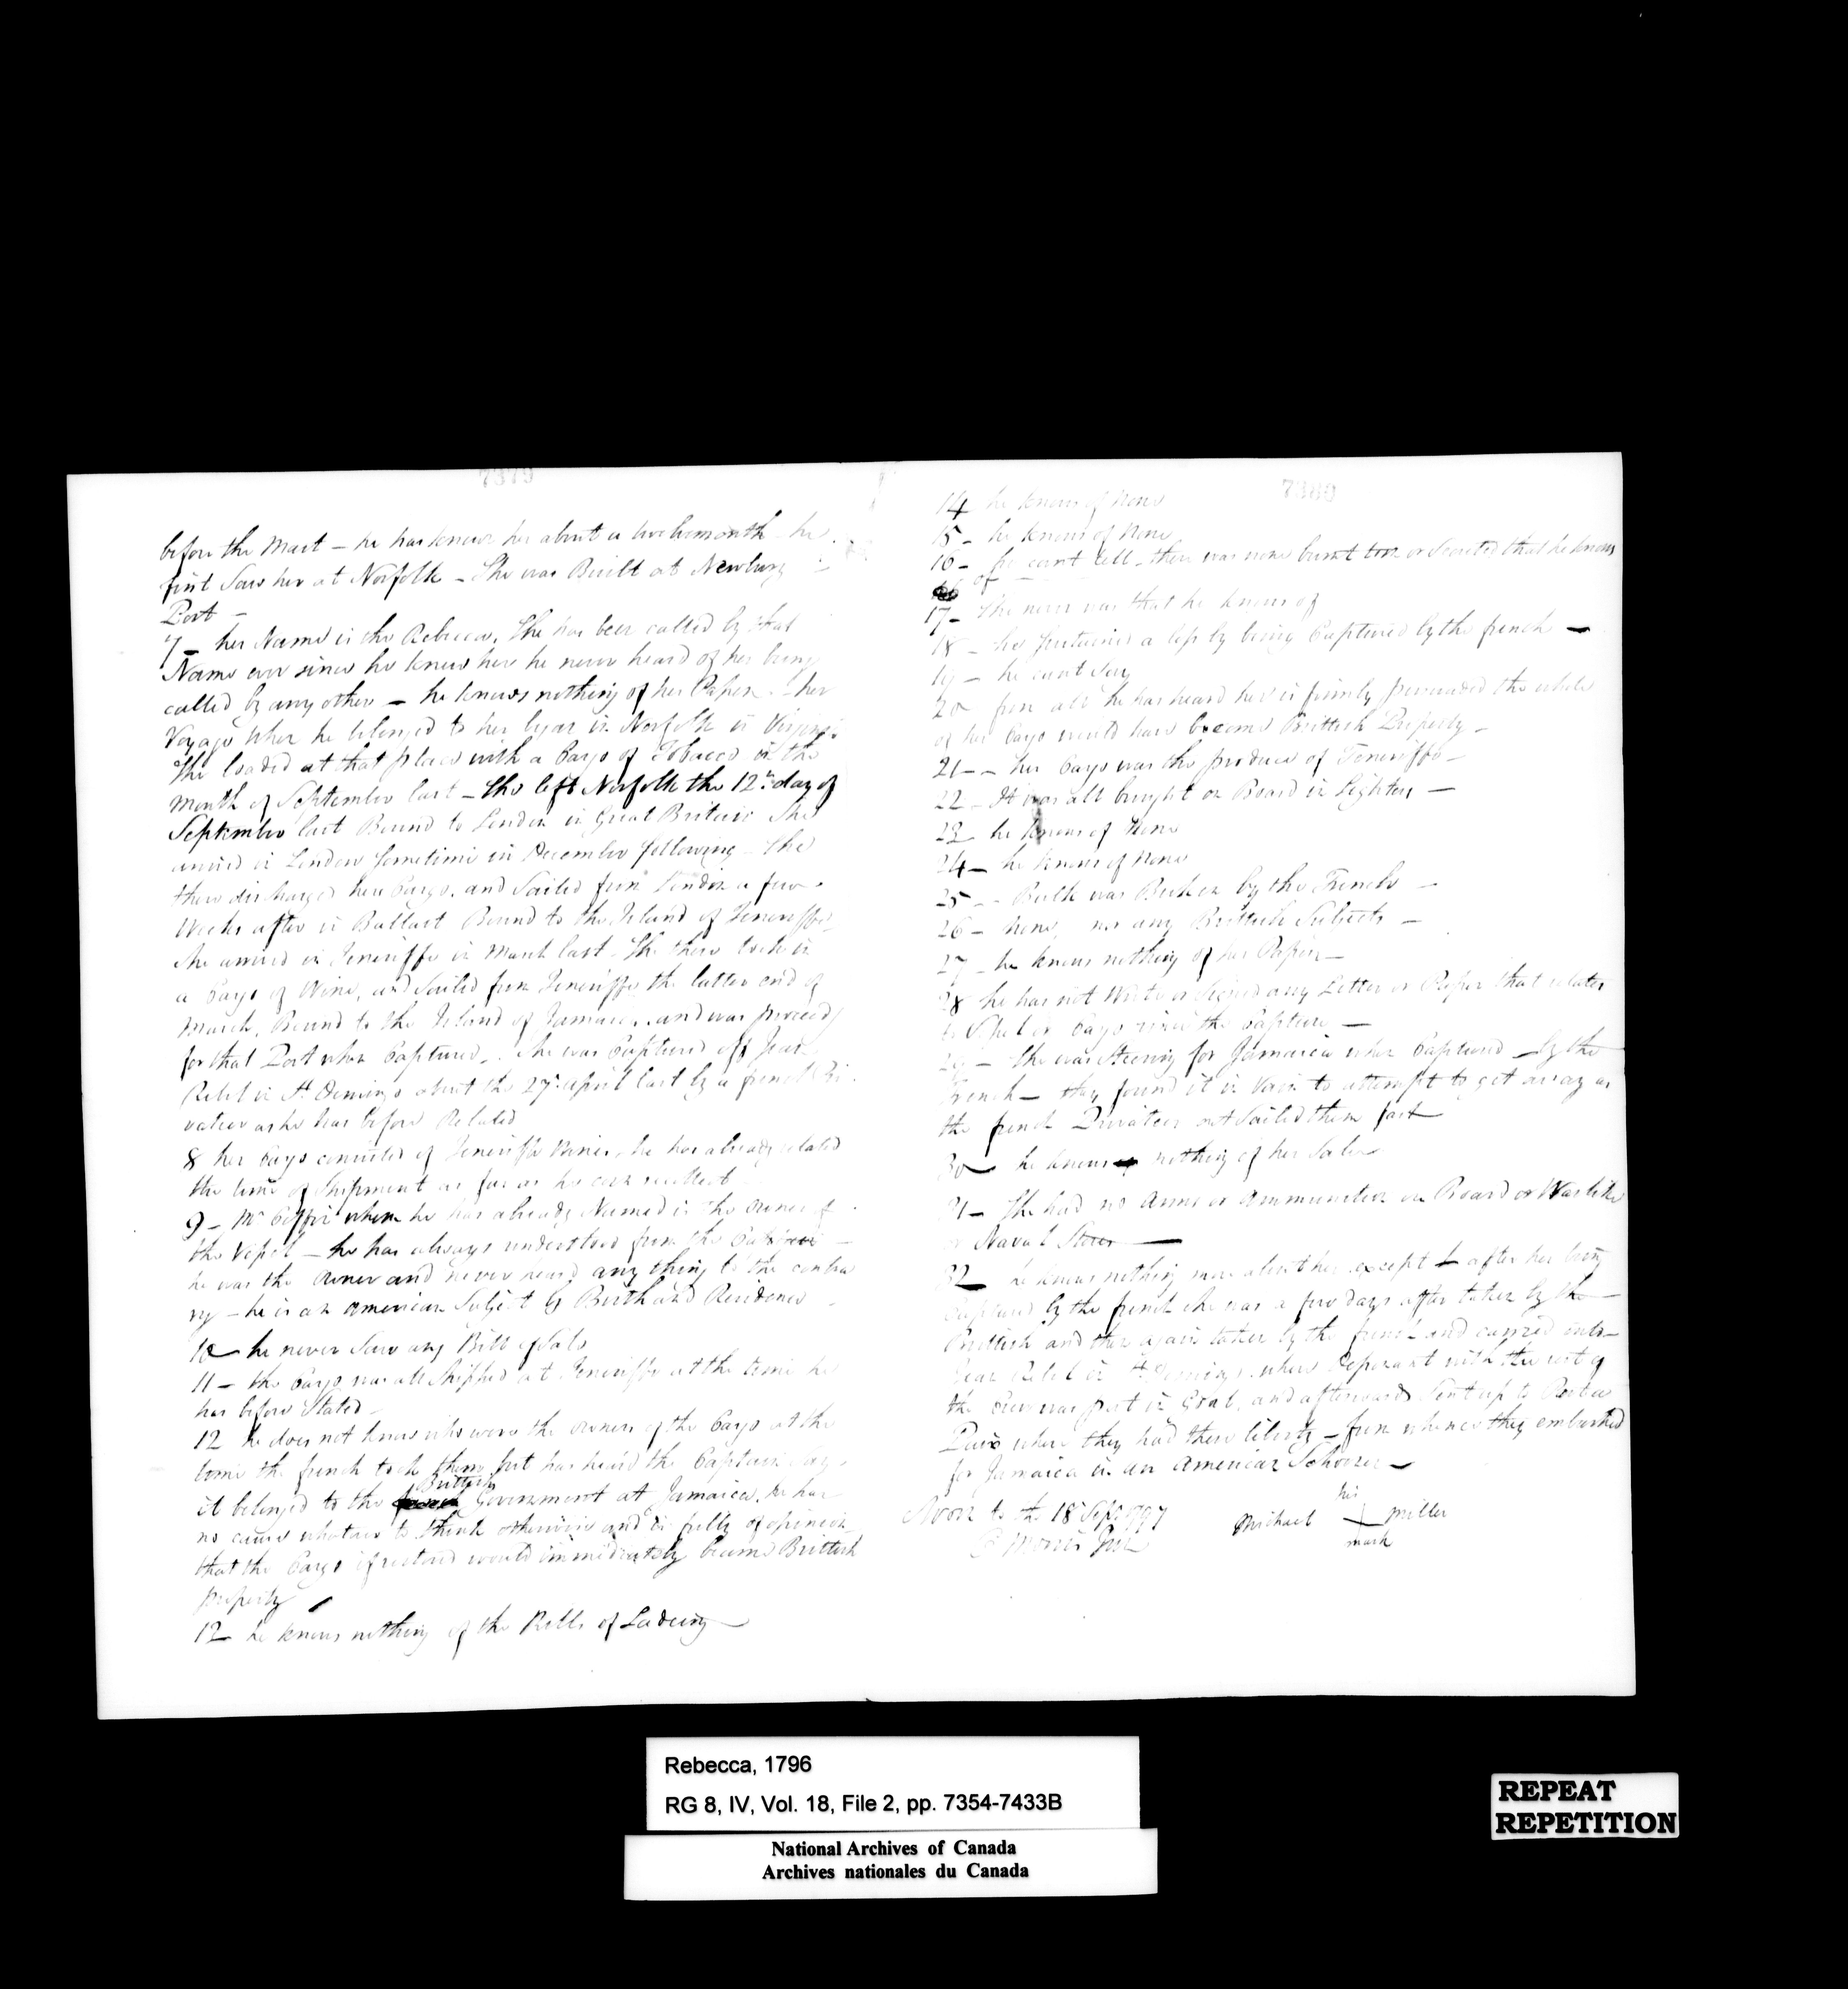 7379
before the Mast - he has known her about a twelvemonth he
first Saw her at Norfolk - She was Built at Newbury
Port -
7 - her Name is the Rebecca, She has been called by that
Name ever since he knew her he never heard of her being
called by any other - he knows nothing of her Papers - her
Voyage when he belonged to her began in Norfolk in Virginia
She loaded at that place with a Cargo of Tobacco in the
Month of September last - She left Norfolk the 12th day of
September last Bound to London in Great Britain She
arrived in London Sometime in December following - She
there discharged her Cargo, and Sailed from London a few
Weeks after in Ballast Bound to the Island of Teneriffe
She arrived in Teneriffe in March last - She there took in
a Cargo of Wine, and Sailed from Teneriffe the latter end of
March, Bound to the Island of Jamaica, and was proceedg
for that Port when Captured. She was Captured off Jean
Rebel in St Domingo about the 27th April last by a french Pri
vateer as he has before Related
8 her Cargo consisted of Teneriffe Wines, he has already related
the time of Shipment as far as he can recollect
9 - Mr whom he has already Named is the owner of
the Vessel - he has always understood from the Captain
he was the Owner and never heard any thing to the contra
ry - he is an American Subject by Birth and Residence
10 he never Saw any Bill of Sale
11 - the Cargo was all Shipped at Teneriffe at the time he
has before Stated -
12 he does not know who were the owners of the Cargo at the
time the french took them, but has heard the Captain Say
it belonged to the Brittish Government at Jamaica, he has
no cause whatever to think otherwise and is fully of opinion
that the Cargo if restored would immediately become Brittish
property
12 he knows nothing of the Bills of Ladeing
7380
14 he knows of None
15 - he knows of None
16 - he can't tell - there was none burnt tore or Secreted that he knows
of -
17 - She never was that he knows of
18 - he sustained a loss by being Captured by the french -
19 - he cant Say
20 from all he has heard he is firmly persuaded the whole
of her Cargo would have become Brittish Property -
21 - - her Cargo was the produce of Teneriffe -
22 - It was all brought on Board in Lighters -
23 he knows of None
24 - he knows of None
25 - - Bulk was Broken by the French -
26 - none, nor any Brittish Subjects -
27 - he knows nothing of her Papers -
28 he has not Wrote or Signed any Letter or Paper that relates
to Vessel or Cargo since the Capture -
29 - She was Steering for Jamaica when Captured by the
French - they found it in vain to attempt to get away as
the french Privateer out Sailed them fast
30 he knows nothing of her Sale
31 - She had no Arms or Ammunition on Board or Warlike
or Naval Stores -
32 he knows nothing more about her except after her being
captured by the french she was a few days after taken by the -
Brittish and then again taken by the french and carried into -
Jean Rebel in St Domingo where Deponent with the rest of
the Crew was put in Goal, and afterwards Sent up to Port a
Paix where they had there liberty - from whence they embarked
for Jamaica in an American Schooner -
Sworn to the 18 Sept 1797
Morris
his
Michael Miller
mark
Rebecca, 1796
RG 8, IV, Vol. 18, File 2, pp. 7354-7433B
National Archives of Canada
Archives nationales du Canada
REPEAT
REPETITION